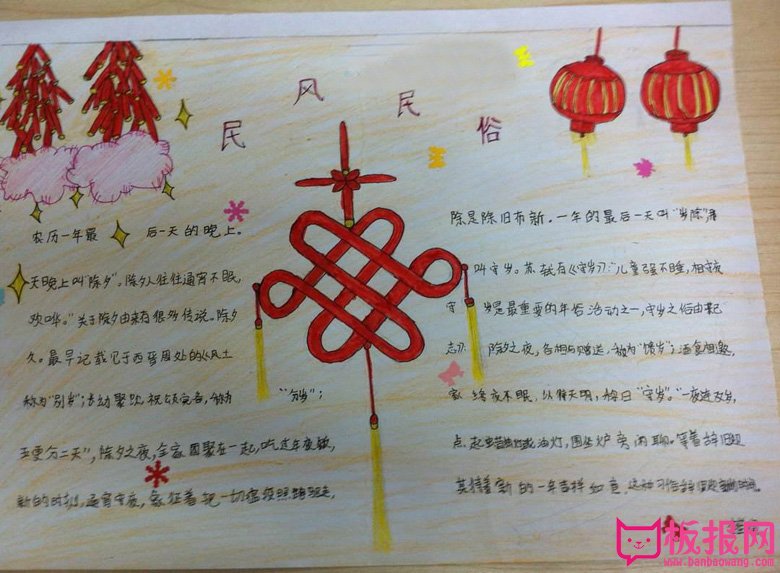 民风民俗
农历一年最后一天的晚上。
除是除旧布新。一年的最后一天叫“岁除”,那
天晚上叫“除夕”。除夕人往往通宵不眠,
叫守岁。苏轼有《守岁》:“儿童强不睡,相守夜
欢哗。”关于除夕由来有很多传说。除夕
守岁是最重要的年俗活动之一,守岁之俗由来
久。最早记载见于西晋周处的《风土
志》:除夕之夜,各相与赠送,称为“馈岁”;酒食相邀,
称为“别岁”;长幼聚饮,祝颂完备,称为“分岁”;
家终夜不眠,以待天明,称曰“守岁”。“一夜连双岁,
五更分二天”,除夕之夜,全家团聚在一起,吃过年夜饭,
点起蜡烛或油灯,围坐炉旁闲聊。等着辞旧迎
新的时刻,通宵守夜,象征着把一切瘟疫照跑驱走,
期待着新的一年吉祥如意。这种习俗
板报网
www.banbaowang.com